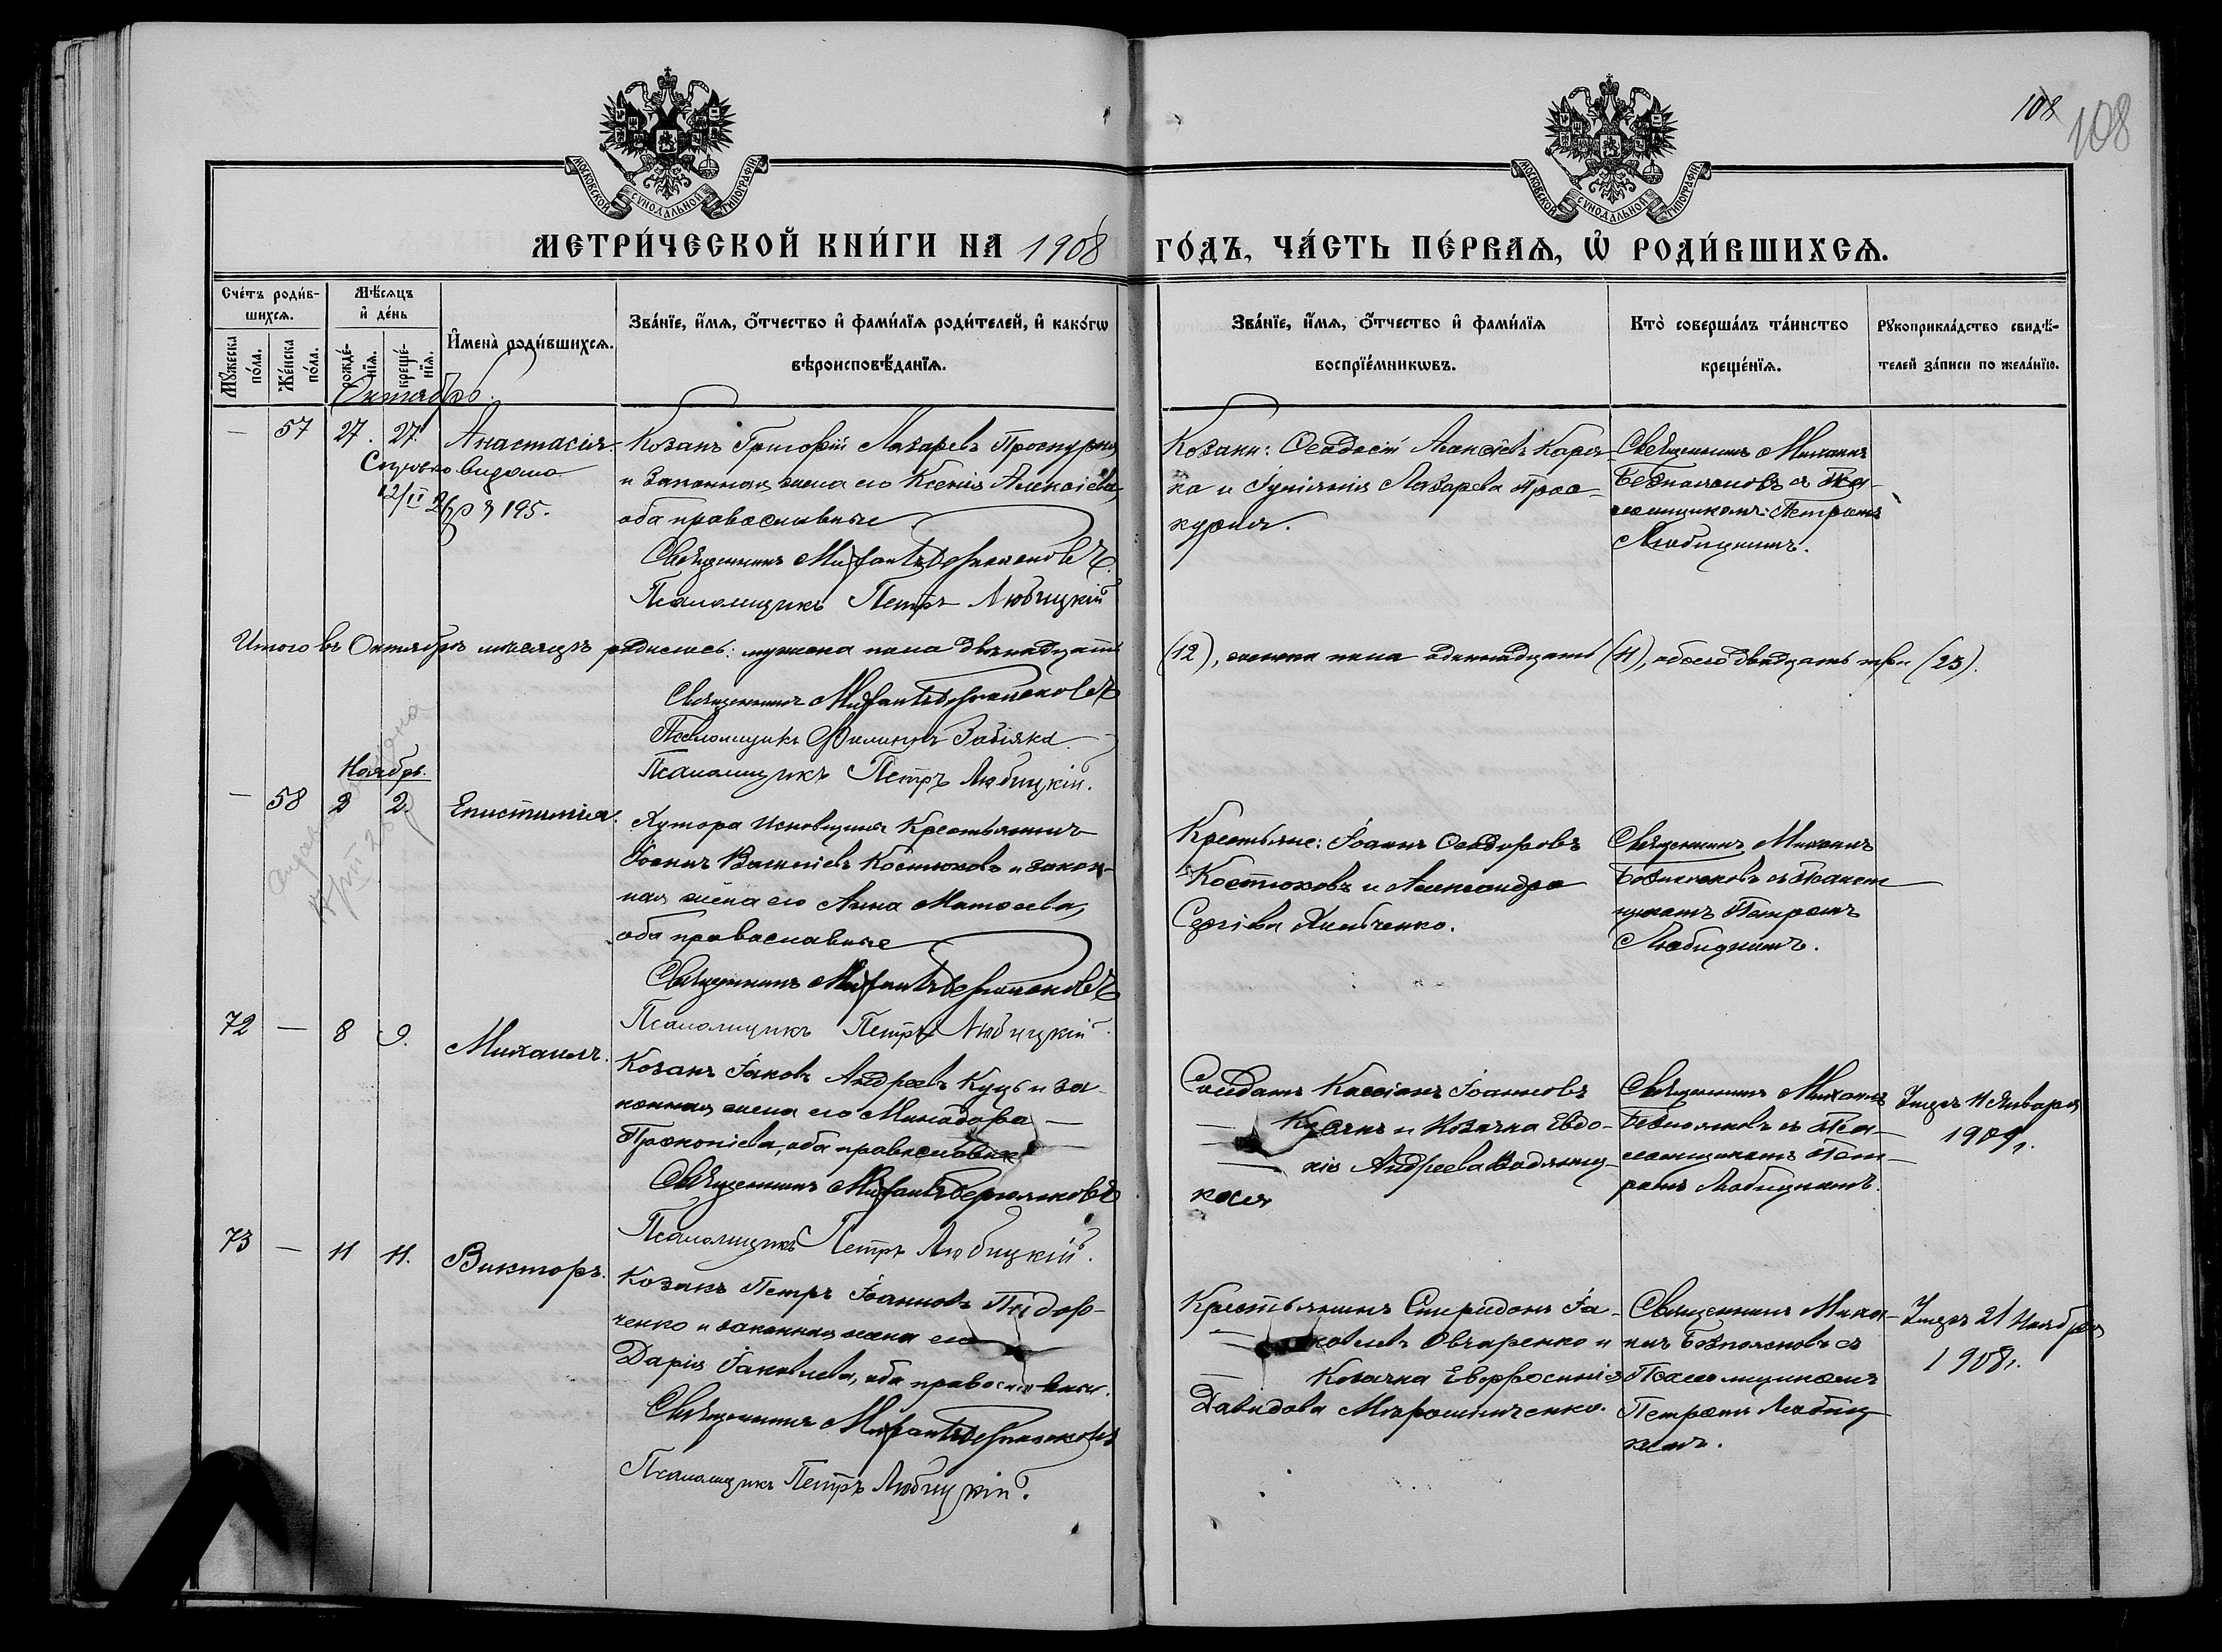 108
108
МОСКОВСКОЙ СѴНОДАЛЬНОЙ ТИПОГРАФІИ
МОСКОВСКОЙ СѴНОДАЛЬНОЙ ТИПОГРАФІИ
МЕТРИ́ЧЕСКОЙ КНИ́ГИ НА 1908 ГО́ДЪ, ЧА́СТЬ ПЕ́РВАѦ, Ѡ҆ РОДИ́ВШИХСѦ.
Сче́тъ роди́в-
шихсѧ.
Мꙋ́жеска по́ла.
Же́нска по́ла.
Мѣ́сѧцъ
и҆ де́нь
рожде́-
нїѧ.
креще́-
нїѧ.
И҆мена̀ роди́вшихсѧ.
Зва́нїе, и҆́мѧ, ѻ҆́тчество и҆ фами́лїѧ роди́телей, и҆ како́гѡ
вѣроисповѣ́данїѧ.
Зва́нїе, и҆́мѧ, ѻ҆́тчество и҆ фами́лїѧ
воспрїе́мникѡвъ.
Кто̀ соверша́лъ та́инство
креще́нїѧ.
Рꙋкоприкла́дство свидѣ́-
телей за́писи по жела́нїю.
Октябрь.
— 57 27. 27. Анастасія.
12/II 195.
Козакъ Григорій Лазаревъ Проскурня
и законная жена его Ксенія Алексіева,
оба православные
Священникъ Михаилъ Безпояковъ
Псаломщикъ Петръ Любицкій
Козаки: Ѳеодосій
и Іуліанія Лазарева Прос-
курня.
Священникъ Михаилъ
съ Пса-
ломщикомъ Петромъ
Любицкимъ.
Итого въ Октябрѣ мѣсяцѣ родилось: мужеска пола двѣнадцать (12), женска пола одиннадцать (11), обоего двадцать три (23).
Священникъ Михаилъ
Псаломщикъ Филиппъ Забіяка
Псаломщикъ Петръ Любицкій.
Ноябрь.
— 58 2 2. Епистимія.
Хутора Крестьянинъ
Іоаннъ Васильевъ Костюковъ и закон-
ная жена его Анна Матѳеева,
оба православные
Священникъ Михаилъ
Псаломщикъ Петръ Любицкій.
Крестьяне: Іоаннъ Ѳеодоровъ
Костюковъ и Александра
Сергіева
Священникъ Михаилъ
съ Псалом-
щикомъ Петромъ
Любицкимъ.
72 — 8 9. Михаилъ.
Козакъ Іаковъ Андреевъ Куцъ и за-
конная жена его Минодора
Прокопіева, оба православные
Священникъ Михаилъ
Псаломщикъ Петръ Любицкій.
Солдатъ Кассіанъ Іоанновъ
и Козачка Евдо-
кія Андреева
ская
Священникъ Михаилъ
съ Пса-
ломщикомъ Пет-
ромъ Любицкимъ.
Умеръ 11 Января
1909 г.
73 — 11 11. Викторъ.
Козакъ Петръ Іоанновъ
ченко и законная жена его
Дарія Іаковлева, оба православные.
Священникъ Михаилъ
Псаломщикъ Петръ Любицкій.
Крестьянинъ Спиридонъ Іа-
ковлевъ Овчаренко и
Козачка Евфросинія
Давидова Мирошниченко.
Священникъ Миха-
илъ съ
Псаломщикомъ
Петромъ Любиц-
кимъ.
Умеръ 21 Ноября
1908 г.